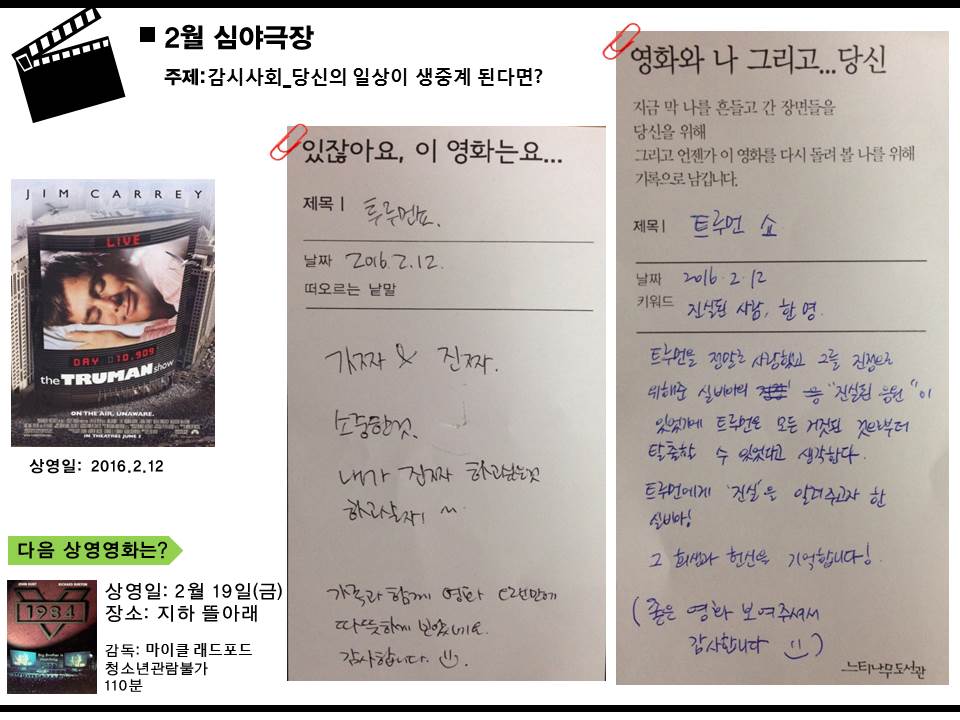 ■ 2월 심야극장
주제:감시사회_당신의 일상이 생중계 된다면?
JIM CARREY
LIVE
DAY 10,909
the TRUMAN show
ON THE AIR, UNAWARE.
IN THEATRES JUNE 5
상영일: 2016.2.12
다음 상영영화는?
JOHN HURT RICHARD BURTON
1984
상영일: 2월 19일(금)
장소: 지하 뜰아래
감독: 마이클 래드포드
청소년관람불가
110분
있잖아요, 이 영화는요...
제목 | 트루먼쇼.
날짜 2016.2.12.
떠오르는 낱말
가짜 & 진짜.
소중한것.
내가 진짜 하고싶은것
하고살자! ~
가족과 함께 영화 오랜만에
따뜻하게 보았네요.
감사합니다.
영화와 나 그리고...당신
지금 막 나를 흔들고 간 장면들을
당신을 위해
그리고 언젠가 이 영화를 다시 돌려 볼 나를 위해
기록으로 남깁니다.
제목 | 트루먼 쇼
날짜 2016.2.12
키워드 진실된 사람, 한 명.
트루먼을 정말로 사랑했고 그를 진정으로
위해준 실비아의 "진실된 응원"이
있었기에 트루먼은 모든 거짓된 것으로부터
탈출할 수 있었다고 생각한다.
트루먼에게 '진실'을 알려주고자 한
실비아!
그 희생과 헌신을 기억합니다!
(좋은 영화 보여주셔서
감사합니다)
느티나무도서관